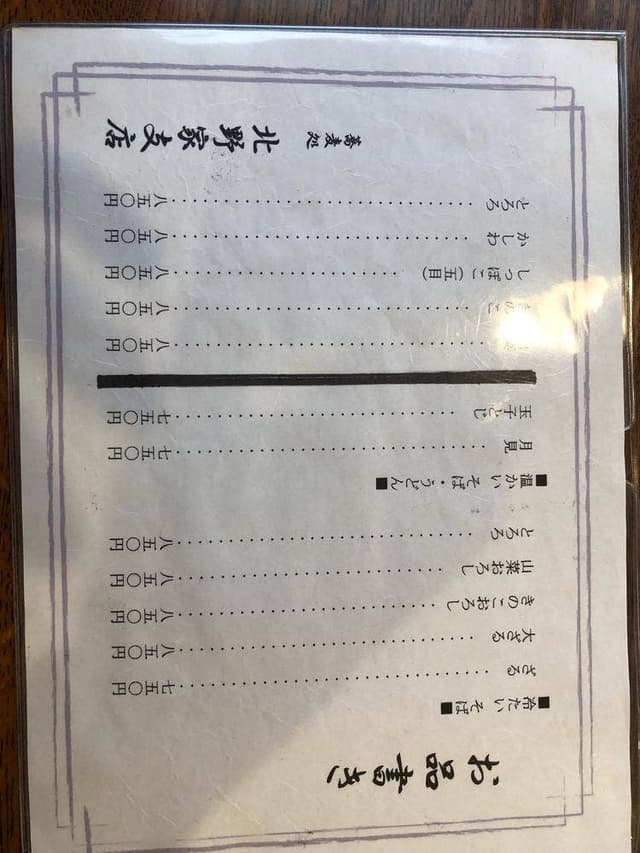 お品書き
■冷たいそば■
ざる……七五〇円
大ざる……八五〇円
きのこおろし……八五〇円
山菜おろし……八五〇円
とろろ……八五〇円
■温かいそば・うどん■
月見……七五〇円
玉子とじ……七五〇円
……八五〇円
きのこ……八五〇円
しっぽこ(五目)……八五〇円
かしわ……八五〇円
とろろ……八五〇円
蕎麦処 北野家支店